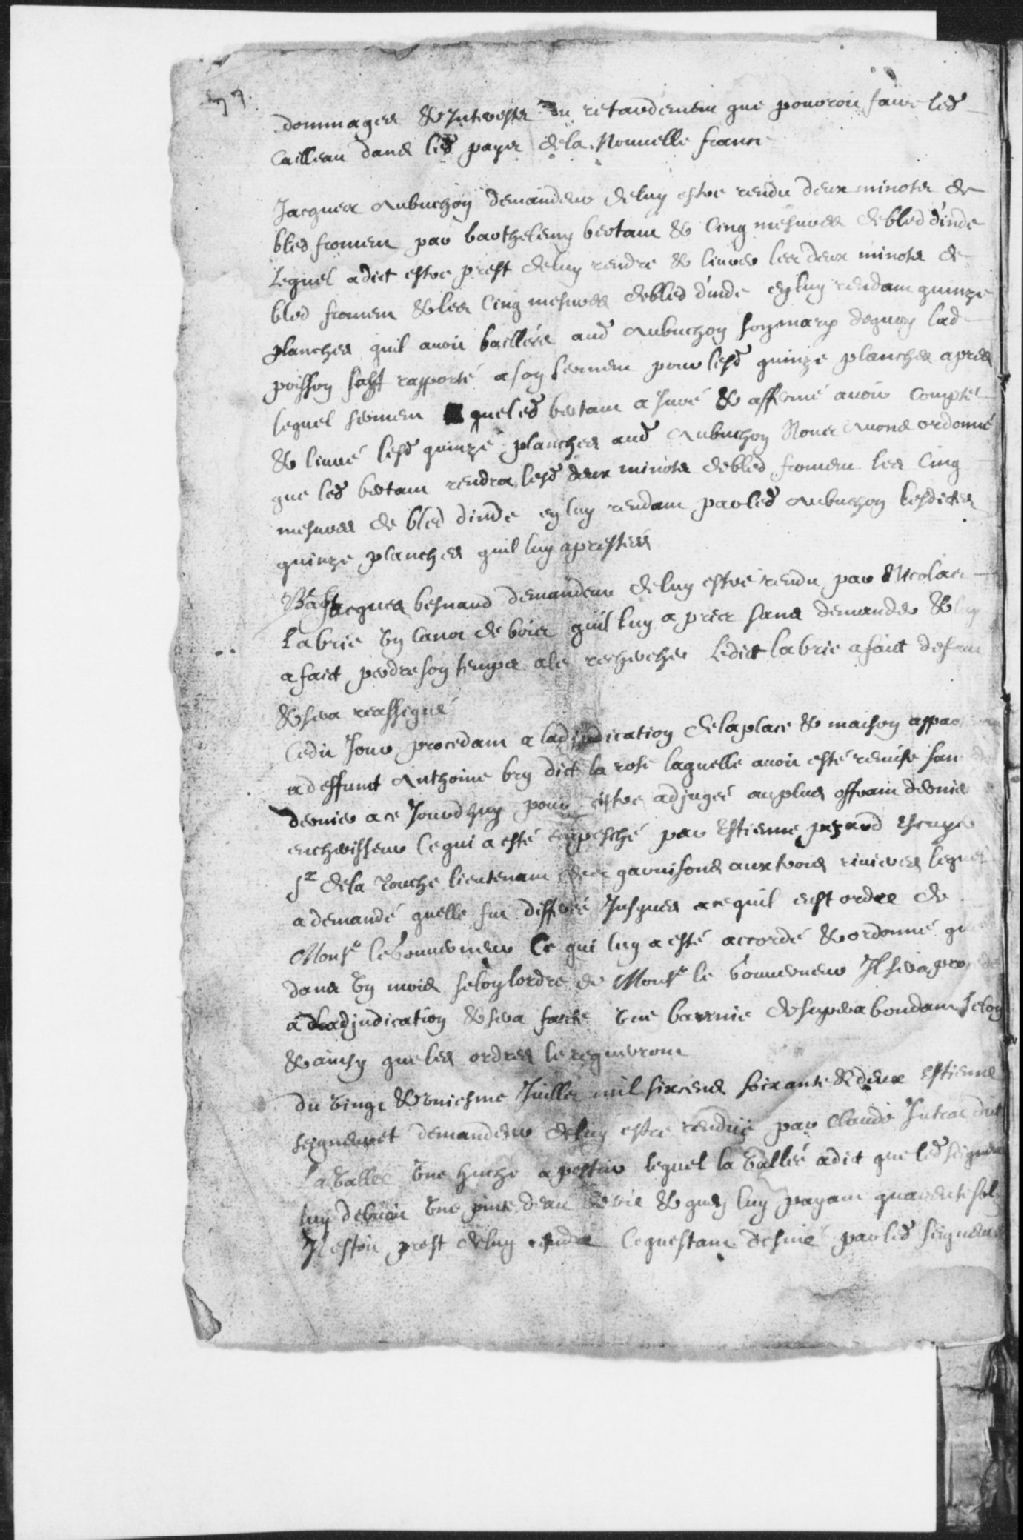 dommages & Interests du retardement que pouroit faire led
Cailleau dans lesd payes dela Nouuelle france
Jacques Aubuchon demandeur deluy estre rendu deux minots de
bled froment par barthelemy bertau & Cinq mesures debled dinde
Lequel adict estre prest deluy rendre & liurer les deux minots de
bled froment & les Cinq mesures debled dinde en luy rendant quinze
planches quil auoit baillées aud Aubuchon son mary dequoy lad
poisson sest rapporté a son serment pour lesd quinze planches apres
lequel serment queled bertau a Juré & affermé auoir Compté
& liuré lesd quinze planches aud Aubuchon Nous Auons ordonné
que led bertau rendra lesd deux minots debled froment les Cinq
mesures de bled dinde en luy rendant parled Aubuchon lesdictes
quinze planches quil luy a prestées
Jacques besnard demandeur deluy estre rendu par Nicolas
Labrie Un Canot de bois quil luy a pris sans demander & luy
a faict perdre son temps ale rechercher Ledict labrie a faict defaut
& sera reassigné
Cedit Jour procedant a ladjudication delaplace & maison appar
a deffunct Anthoine bry dict la rose laquelle auoit esté remise
dernier a ce Jourdhuy pour estre adjugée auplus offrant & dernier
encherisseur Ce qui a esté empesché par Estienne pezard Escuyer
Sr dela Touche lieutenant des garnisons aux trois riuieres lequel
a demandé quelle fut differée Jusques a ce quil eust ordre de
Monsr leGouuerneur Ce qui luy a esté accordé & ordonné que
dans Un mois selon lordre de Monsr le Gouuerneur Il sera procedé
a Ladjudication & sera faicte Une de superabondant selon
& ainsy que les ordres le requerront
du Vingt & Uniesme Juillet mil six cens soixante & deux Estienne
seigneuret demandeur deluy estre rendüe par Claude
La Vallée Une huche a pestrir lequel la Vallée adict que led seigneuret
luy debuoit Une pinte deau de vie & quen luy payant quarente sols
Il estoit prest deluy rendre Ce questant desnié parled seigneuret